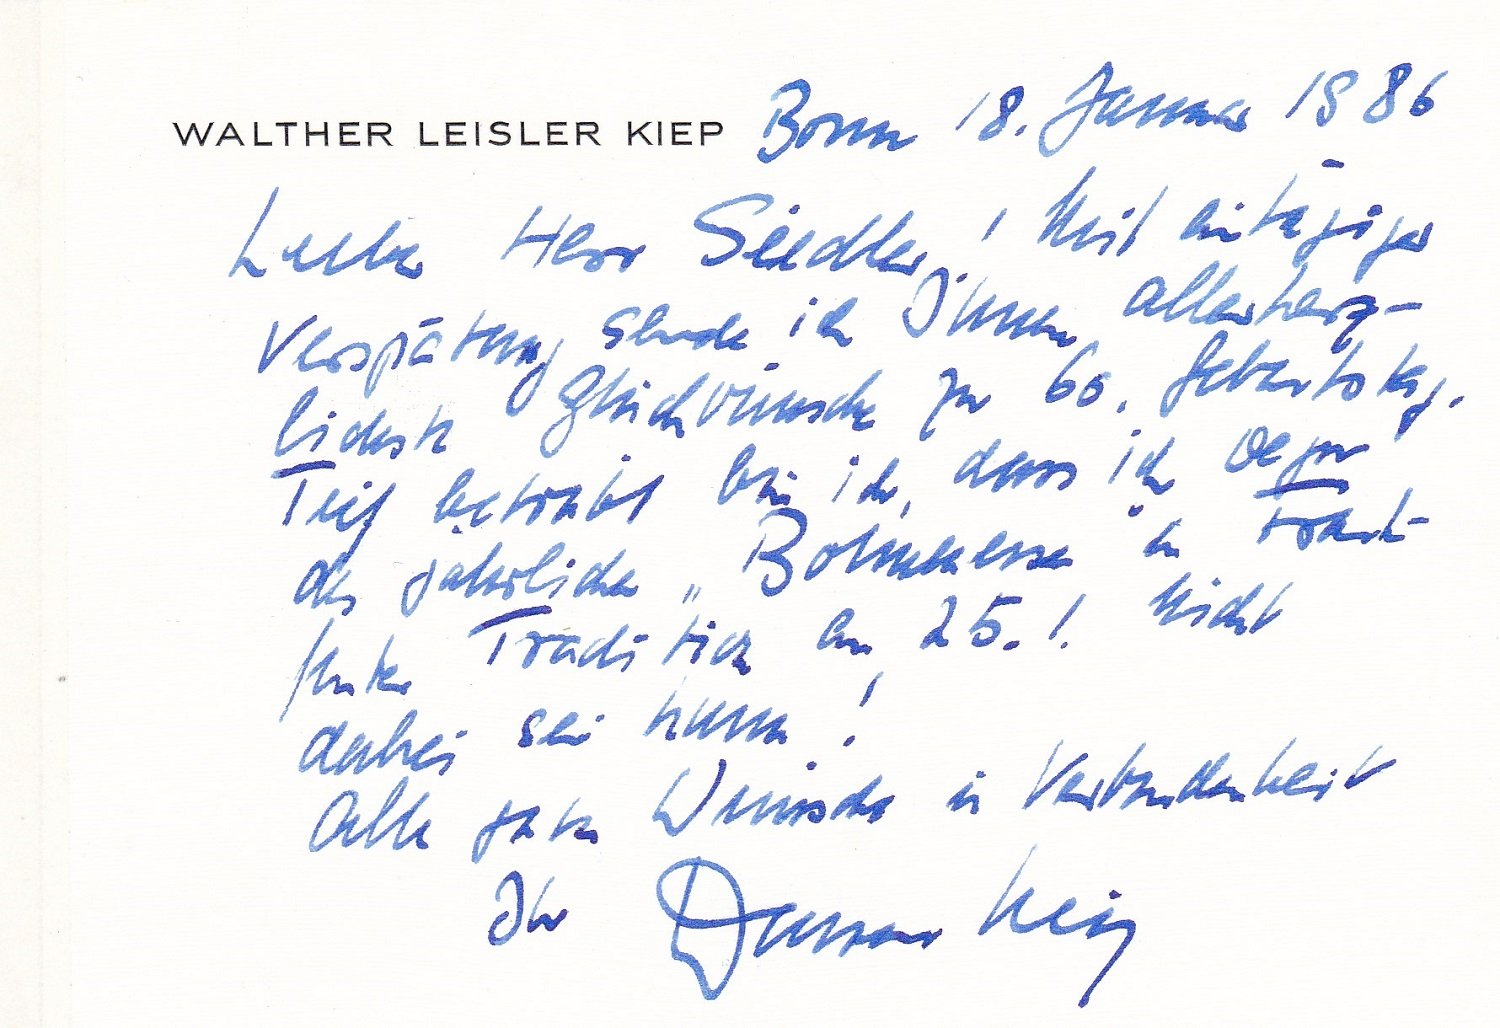 WALTHER LEISLER KIEP Bonn 18. Januar 1986
Lieber Herr Siedler! Mit eintägiger
Verspätung sende ich Ihnen allerherz-
lichste Glückwünsche zum 60. Geburtstag.
Tief betrübt bin ich, dass ich wegen
des jährlichen „Bohnenessen in Frank-
furter Tradition am 25.! nicht
dabei sein kann!
Alle guten Wünsche in Verbundenheit
Ihr Kiep